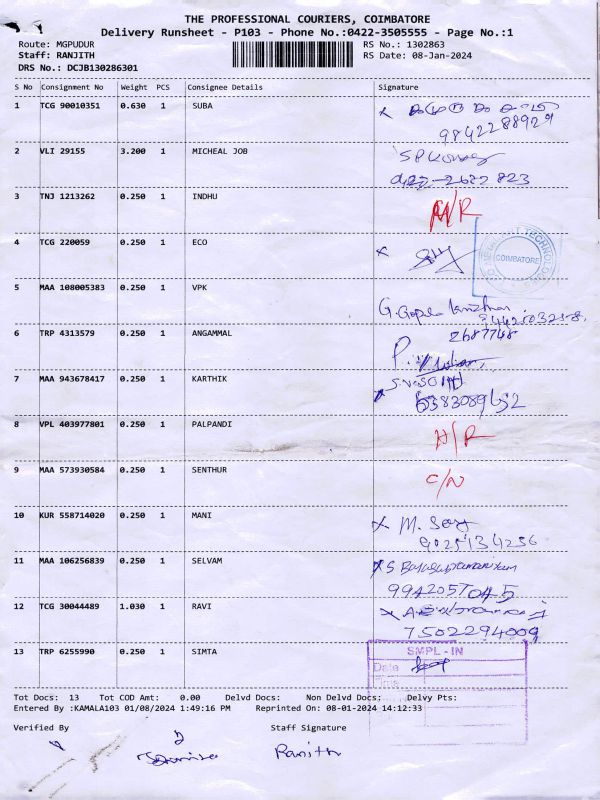 THE PROFESSIONAL COURIERS, COIMBATORE
Delivery Runsheet - P103 - Phone No.:0422-3505555 - Page No.:1
Route: MGPUDUR RS No.: 1302863
Staff: RANJITH RS Date: 08-Jan-2024
DRS No.: DCJB130286301
S No Consignment No Weight PCS Consignee Details Signature
1 TCG 90010351 0.630 1 SUBA
9842288929
2 VLI 29155 3.200 1 MICHEAL JOB
0422-2622823
3 TNJ 1213262 0.250 1 INDHU
4 TCG 220059 0.250 1 ECO
COIMBATORE
5 MAA 108005383 0.250 1 VPK
6 TRP 4313579 0.250 1 ANGAMMAL
2687748
7 MAA 943678417 0.250 1 KARTHIK
8 VPL 403977801 0.250 1 PALPANDI
9 MAA 573930584 0.250 1 SENTHUR C/N
10 KUR 558714020 0.250 1 MANI
9025134256
11 MAA 106256839 0.250 1 SELVAM
12 TCG 30044489 1.030 1 RAVI
7502294009
13 TRP 6255990 0.250 1 SIMTA
SMPL - IN
Date
Time
Tot Docs: 13 Tot COD Amt: 0.00 Delvd Docs: Non Delvd Docs: Delvy Pts:
Entered By :KAMALA103 01/08/2024 1:49:16 PM Reprinted On: 08-01-2024 14:12:33
Verified By Staff Signature
Ranjith